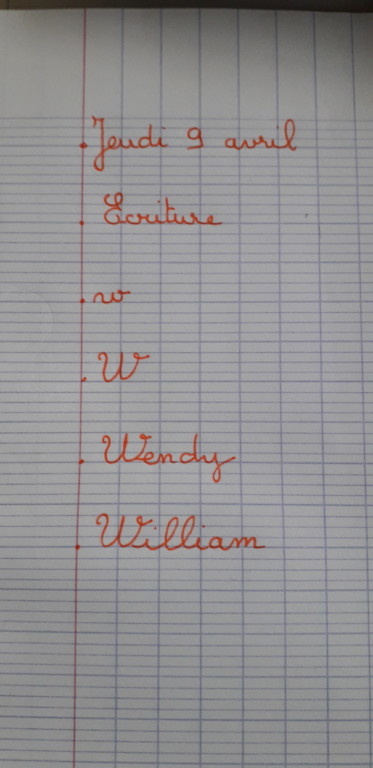 Jeudi 9 avril
Ecriture
w
W
Wendy
William